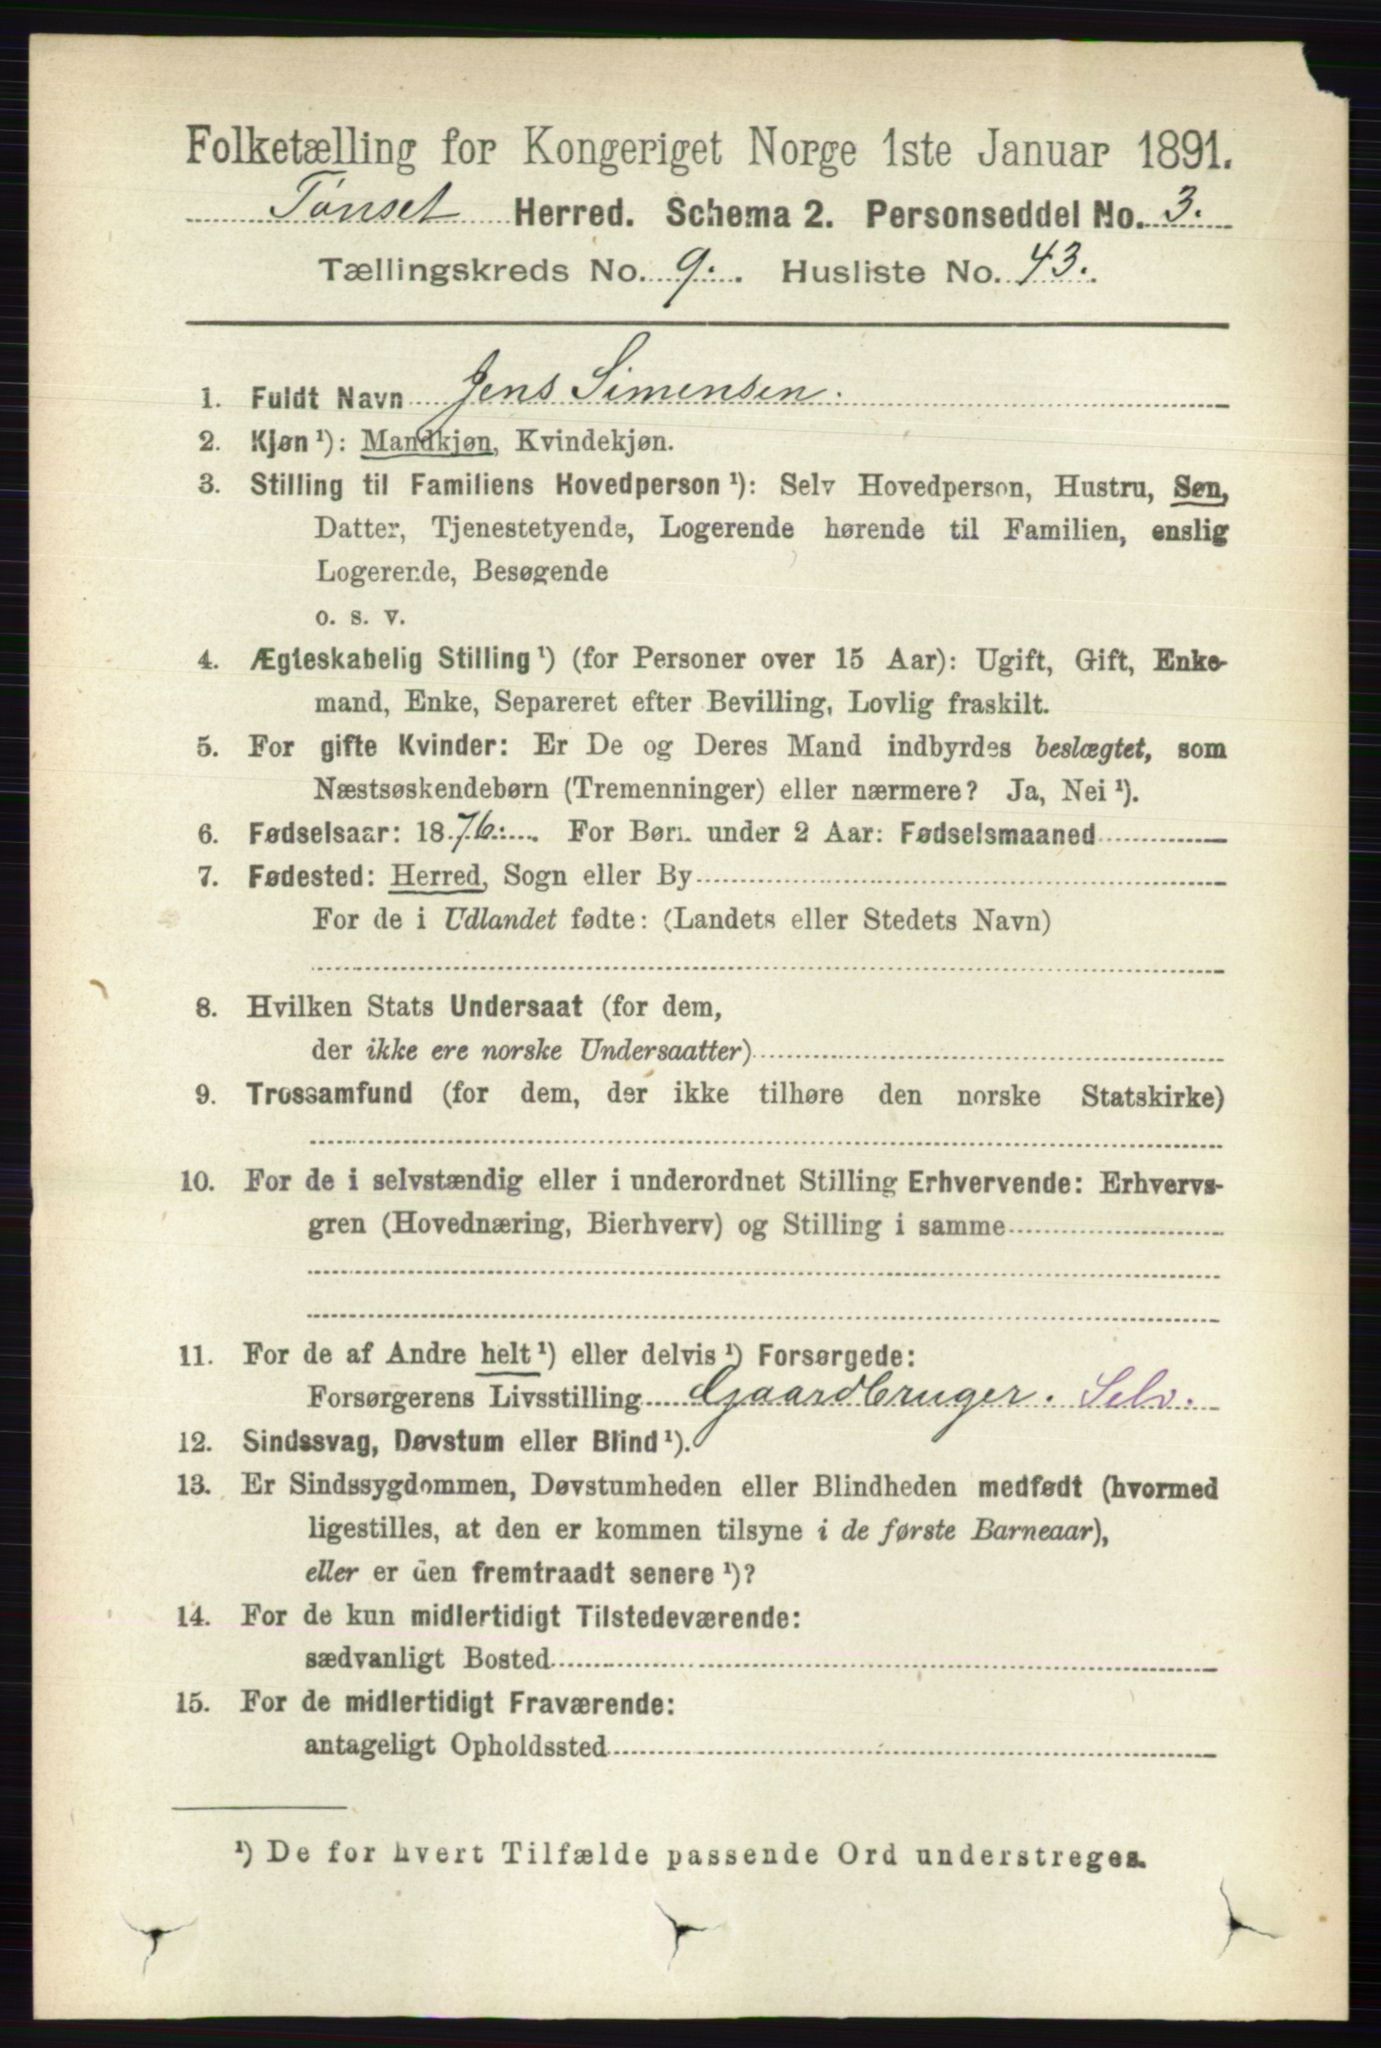 Folketælling for Kongeriget Norge 1ste Januar 1891.
Tønset Herred. Schema 2. Personseddel No. 3.
Tællingskreds No. 9. Husliste No. 43.
1. Fuldt Navn Jens Simensen.
2. Kjøn ¹): Mandkjøn, Kvindekjøn.
3. Stilling til Familiens Hovedperson ¹): Selv Hovedperson, Hustru, Søn,
Datter, Tjenestetyende, Logerende hørende til Familien, enslig
Logerende, Besøgende
o. s. v.
4. Ægteskabelig Stilling ¹) (for Personer over 15 Aar): Ugift, Gift, Enke-
mand, Enke, Separeret efter Bevilling, Lovlig fraskilt.
5. For gifte Kvinder: Er De og Deres Mand indbyrdes beslægtet, som
Næstsøskendebørn (Tremenninger) eller nærmere? Ja, Nei ¹).
6. Fødselsaar: 1876. For Børn under 2 Aar: Fødselsmaaned
7. Fødested: Herred, Sogn eller By
For de i Udlandet fødte: (Landets eller Stedets Navn)
8. Hvilken Stats Undersaat (for dem,
der ikke ere norske Undersaatter)
9. Trossamfund (for dem, der ikke tilhøre den norske Statskirke)
10. For de i selvstændig eller i underordnet Stilling Erhvervende: Erhvervs-
gren (Hovednæring, Bierhverv) og Stilling i samme
11. For de af Andre helt ¹) eller delvis ¹) Forsørgede:
Forsørgerens Livsstilling Gaardbruger. Selv.
12. Sindssvag, Døvstum eller Blind ¹).
13. Er Sindssygdommen, Døvstumheden eller Blindheden medfødt (hvormed
ligestilles, at den er kommen tilsyne i de første Barneaar),
eller er den fremtraadt senere ¹)?
14. For de kun midlertidigt Tilstedeværende:
sædvanligt Bosted
15. For de midlertidigt Fraværende:
antageligt Opholdssted
¹) De for hvert Tilfælde passende Ord understreges.